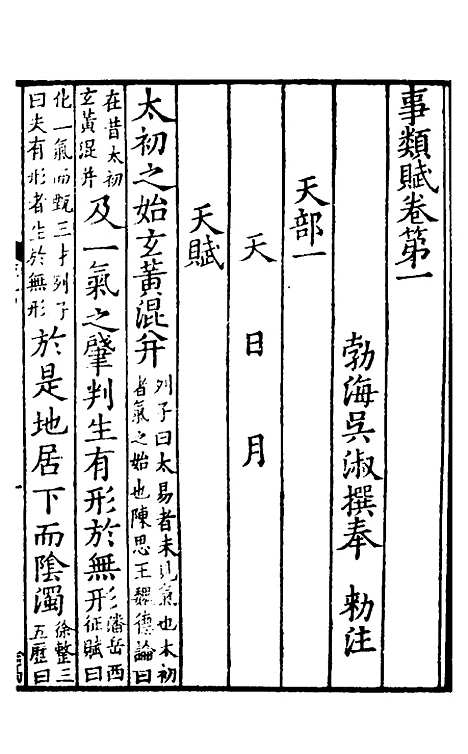 事類賦卷第一
勃海吳淑撰奉　勑注
天部一
天　日　月
天賦
太初之始玄黃混并列子曰太易者未見氣也太初者氣之始也陳思王魏德論曰
在昔太初玄黃混并及一氣之肇判生有形於無形潘岳西征賦曰
化一氣而甄三才列子曰夫有形者生於無形於是地居下而陰濁徐整三五歷曰